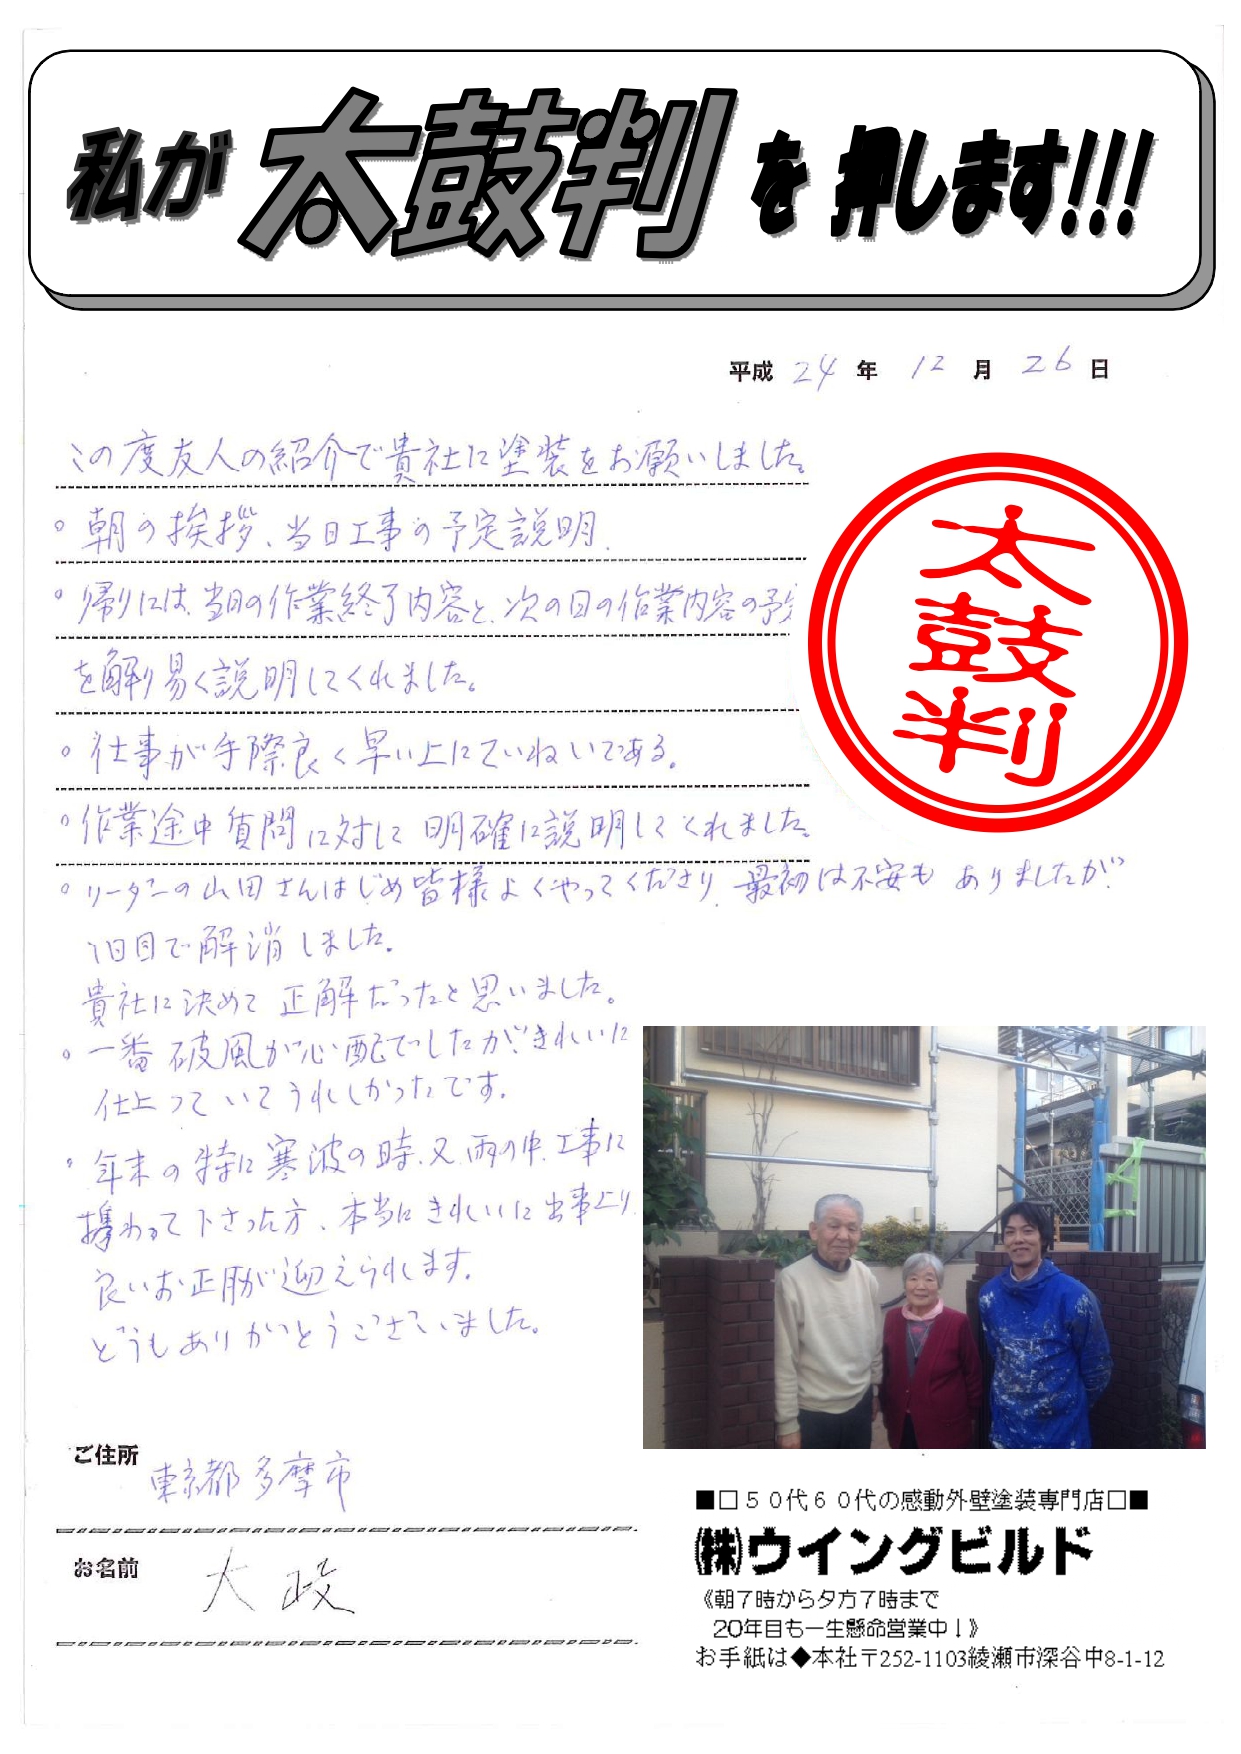 私が太鼓判を押します!!!
平成 24 年 12 月 26 日
この度友人の紹介で貴社に塗装をお願いしました。
。朝の挨拶、当日工事の予定説明
。帰りには、当日の作業終了内容と、次の日の作業内容の予定
を解り易く説明してくれました。
。仕事が手際良く早い上にていねいである。
。作業途中質問に対して明確に説明してくれました。
。リーダーの山田さんはじめ皆様よくやってくださり、最初は不安もありましたが
1日目で解消しました。
貴社に決めて正解だったと思いました。
。一番破風が心配でしたが、きれいに
仕上っていてうれしかったです。
。年末の特に寒波の時、又雨の中、工事に
携わって下さった方、本当にきれいに出来上り
良いお正月が迎えられます。
どうもありがとうございました。
太鼓判
ご住所 東京都多摩市
お名前 大政
■□５０代６０代の感動外壁塗装専門店□■
㈱ウイングビルド
《朝７時から夕方７時まで
20年目も一生懸命営業中！》
お手紙は◆本社〒252-1103綾瀬市深谷中8-1-12